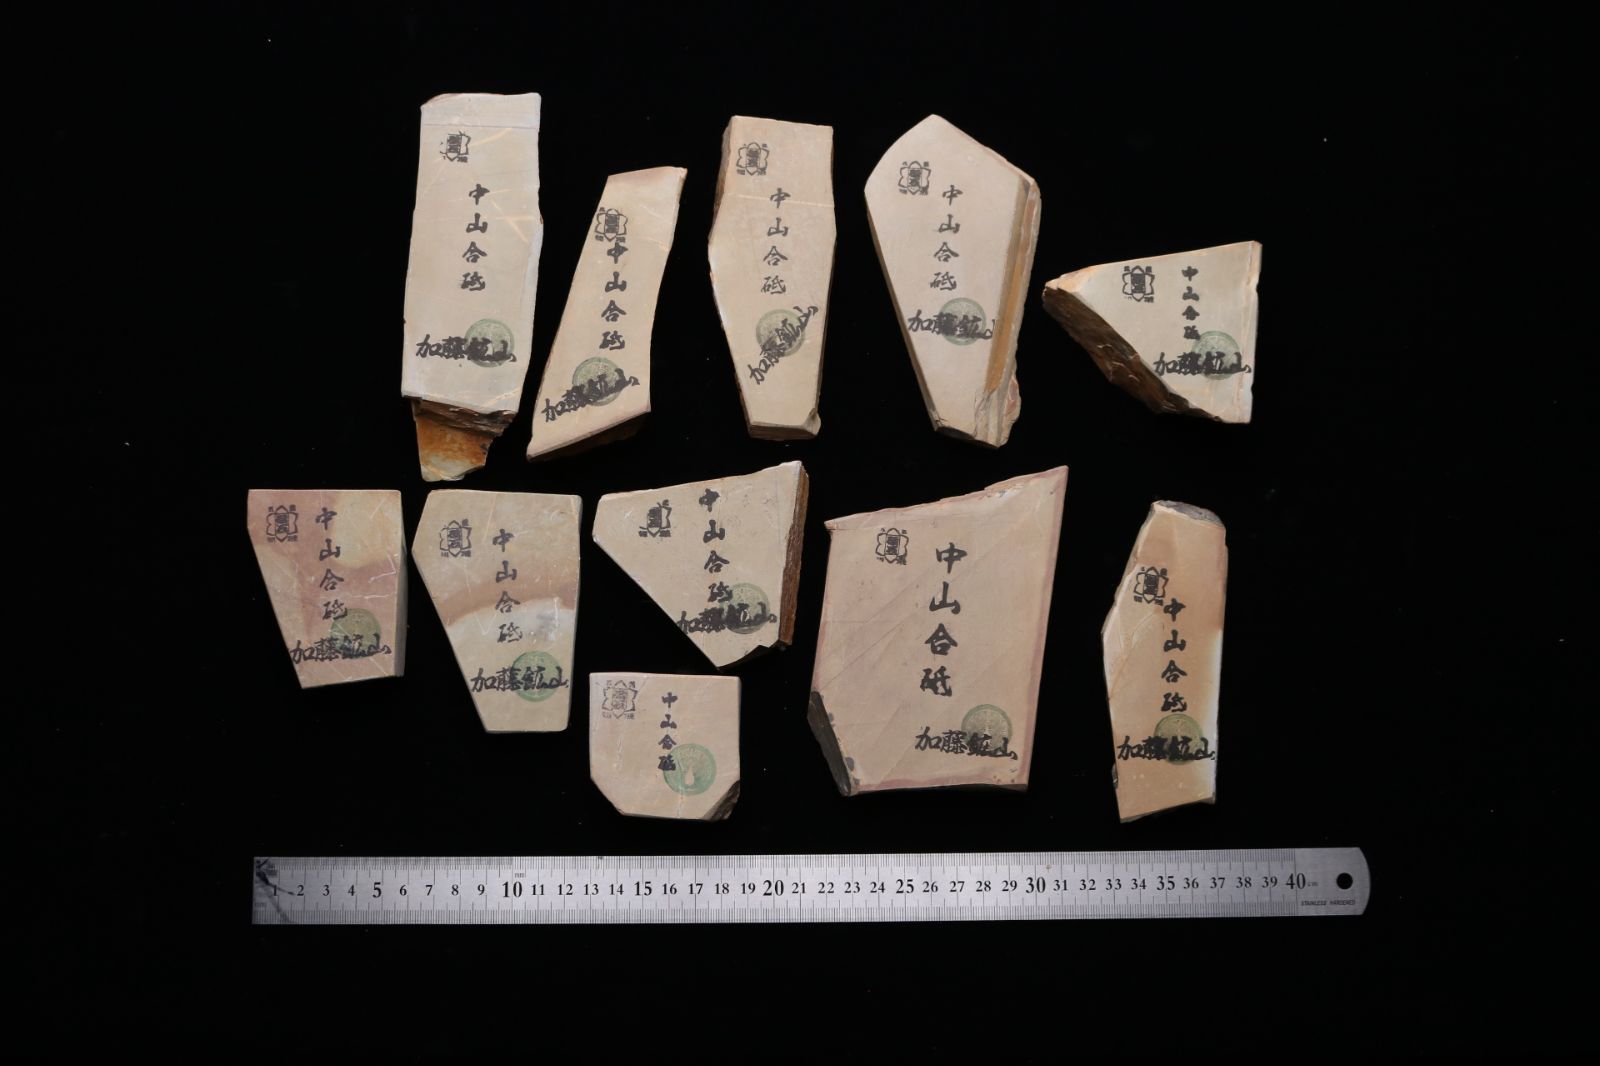 中山合砥
加藤鉱山
中山合砥
加藤鉱山
中山合砥
加藤鉱山
中山合砥
加藤鉱山
中山合砥
加藤鉱山
中山合砥
加藤鉱山
中山合砥
加藤鉱山
中山合砥
加藤鉱山
中山合砥
中山合砥
加藤鉱山
中山合砥
加藤鉱山
1 2 3 4 5 6 7 8 9 10 11 12 13 14 15 16 17 18 19 20 21 22 23 24 25 26 27 28 29 30 31 32 33 34 35 36 37 38 39 40 cm
STAINLESS HARDENED